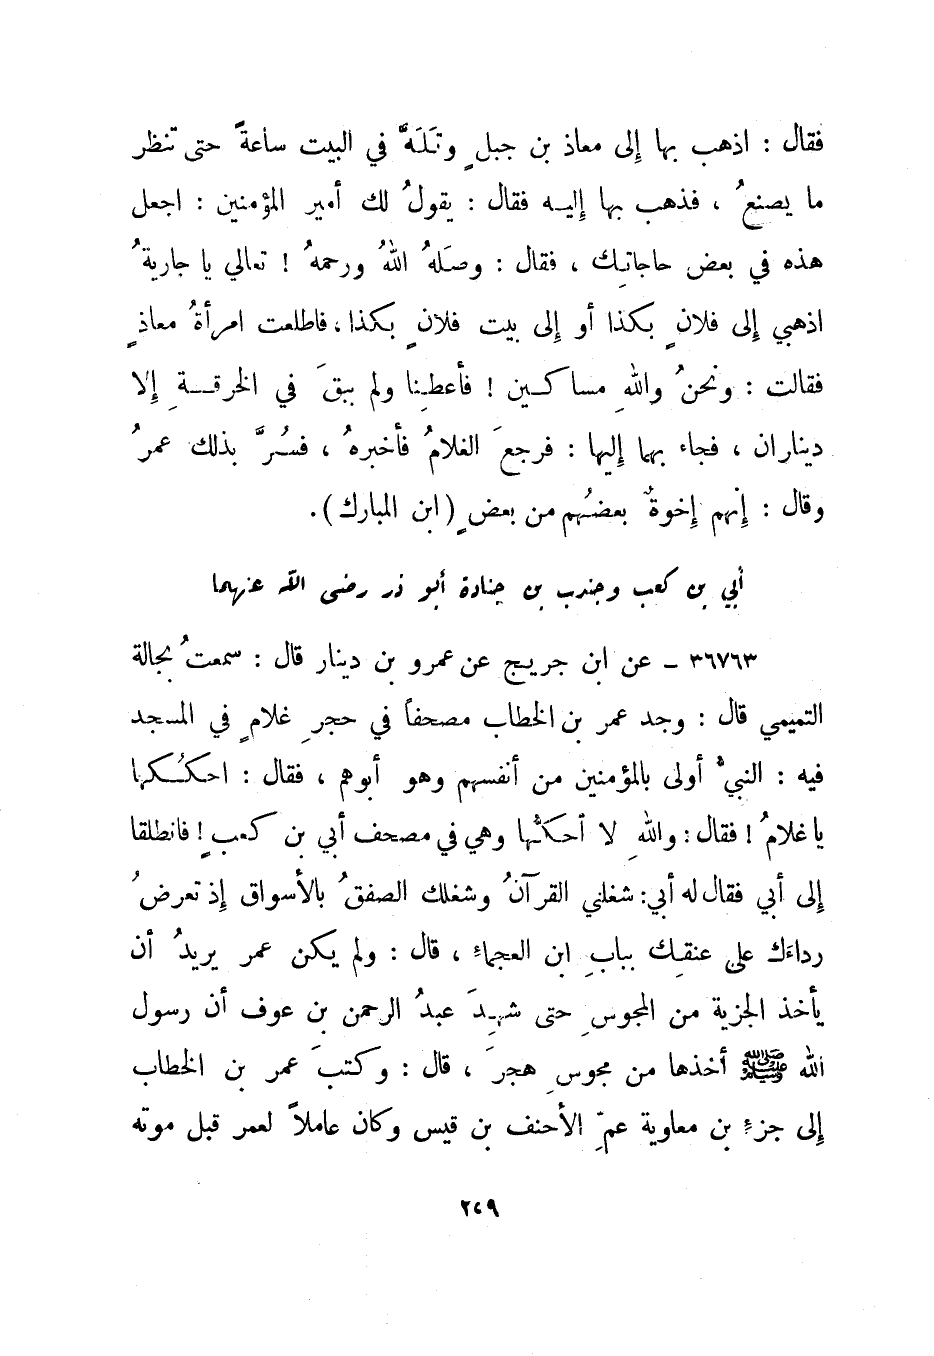 فقال : اذهب بها إلى معاذ بن جبلٍ وتَلَهَّ في البيت ساعةً حتى تنظر
ما يصنعُ ، فذهب بها إليـه فقال : يقولُ لك أمير المؤمنين : اجعل
هذه في بعض حاجاتِك ، فقال : وصلَهُ اللهُ ورحمهُ ! تعالي يا جاريةُ
اذهبي إلى فلانٍ بكذا أو إلى بيت فلانٍ بكذا ، فاطلعت امرأةُ معاذٍ
فقالت : ونحنُ واللهِ مساكـين ! فأعطِنا ولم يبقَ في الخرقـةِ إلا
ديناران ، فجاء بهما إليها : فرجعَ الغلامُ فأخبرهُ ، فسُرَّ بذلك عمرُ
وقال : إنهم إخوةٌ بعضُهم من بعضٍ ( ابن المبارك ) .
أبي بن كعب وجندب بن جنادة أبو ذر رضى الله عنهما
٣٦٧٦٣ ـ عن ابن جريـج عن عمرو بن دينار قال : سمعتُ بجالة
التميمي قال : وجد عمر بن الخطاب مصحفاً في حجرِ غلامٍ في المسجد
فيه : النبيُّ أولى بالمؤمنين من أنفسهم وهو أبوهم ، فقال : احكُـكها
يا غلامُ ! فقال : واللهِ لا أحكُّها وهي في مصحف أبي بن كعبٍ ! فانطلقا
إلى أبي فقال له أبي : شغلني القرآنُ وشغلك الصفقُ بالأسواق إذ تعرضُ
رداءَك على عنقِـك ببابِ ابن العجماءِ ، قال : ولم يكن عمر يريدُ أن
يأخذ الجزية من المجوسِ حتى شهِدَ عبدُ الرحمن بن عوف أن رسول
الله ﷺ أخذها من مجوسِ هجرَ ، قال : وكتبَ عمر بن الخطاب
إلى جزءِ بن معاوية عمِّ الأحنف بن قيس وكان عاملاً لعمر قبل موته
٢٤٩